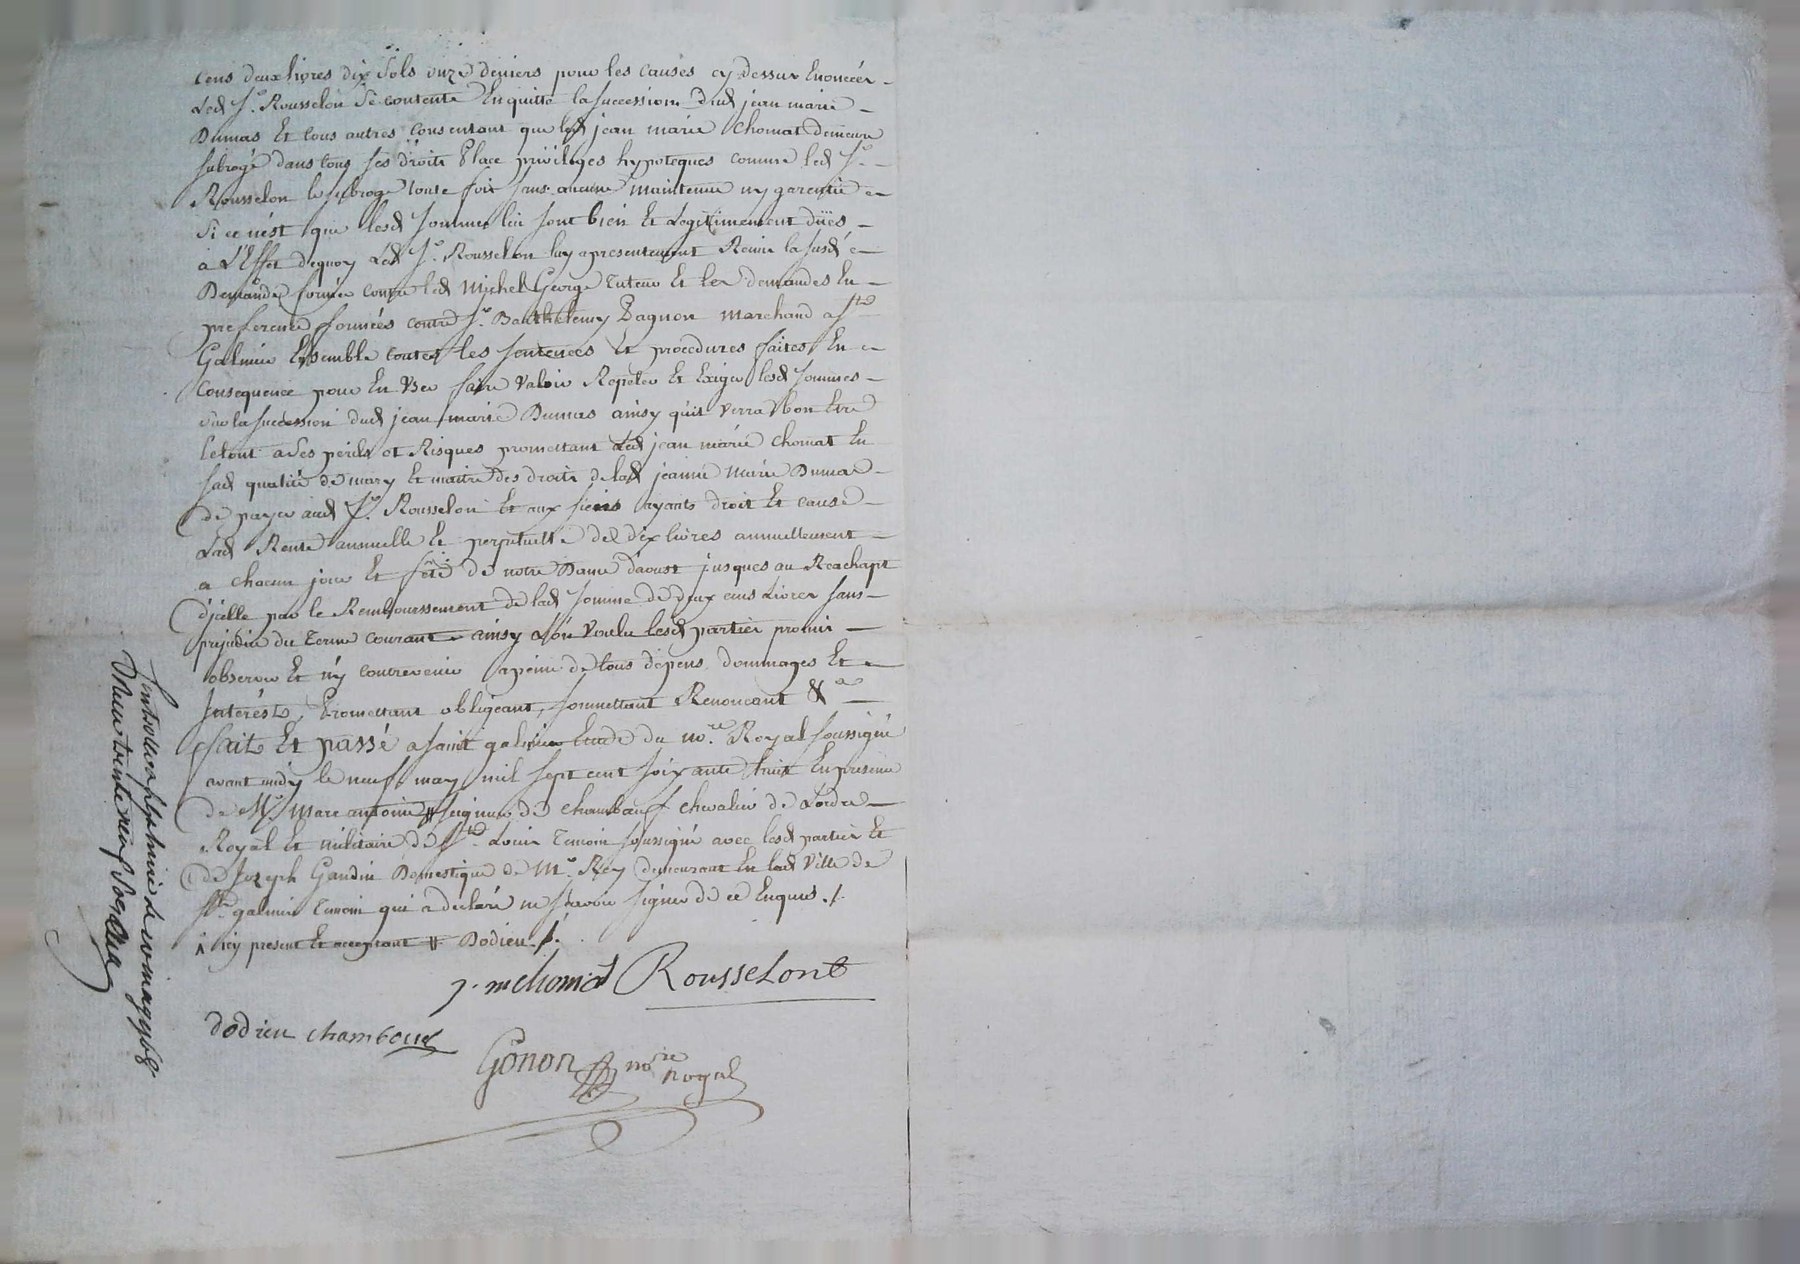 cens deux livres dix sols onze deniers pour les causes cy dessus Enoncées
Led Sr. Rousselon se contente En quitte la succession dud jean marie
Dumas Et tous autres consentant que led jean marie Chomat demeure
subrogé dans tous ses droits Place privileges hypoteques comme led Sr.
Rousselon le subroge toute fois sans aucune maintenue ny garentie
Si ce n'ést que lesd sommes lui sont bien Et Legitimement düës
a L'Effet dequoy Led Sr. Rousselon luy a presentement Remis la susd
Demande formée contre led Michel George tuteur Et les demandes En
preference formées contre Sr. Barthelemy Pagnon marchand a St
Galmier Ensemble toutes les sentences Et procedures faites En
Consequence pour En User faire valoir Repeter Et Exiger lesd sommes
sur la succession dud jean marie Dumas ainsy qu'il verra bon Etre
le tout a ses perils et Risques promettant Led jean marie Chomat En
sad qualité de mary Et maitre des droits de lad jeanne Marie Dumas
de payer aud Sr. Rousselon Et aux siens ayants droit Et cause
Lad Rente annuelle Et perpetuelle de dix livres annuellement
a chacun jour Et fête de notre Dame d'aoust jusques au Reachapt
d'jcelle par le Remboursement de lad somme de deux cens Livres sans
prejudice du terme courant ainsy L'on Voulu lesd parties promis
observer Et n'y contrevenir a peine de tous depens dommages Et
Jnteréts, Promettant obligeant, soumettant Renoncant &a
fait Et passé a saint galmier Etude du nore. Royal soussigné
avant midy le neuf may mil sept cent soixante huit En presence
de Mr. Marc antoine # seigneur de chambœuf chevalier de Lordre
Royal Et militaire de St. Louis temoin soussigné avec lesd parties Et
de Joseph Gandin Domestique de Mr. Rey demeurant En lad Ville de
St galmier temoin qui a declaré ne scavoir signer de ce Enquis ./.
^ icy present Et acceptant # Dodieu ./.
j. m chomat Rousselont
dodieu chambœuf
Gonon nore
royal